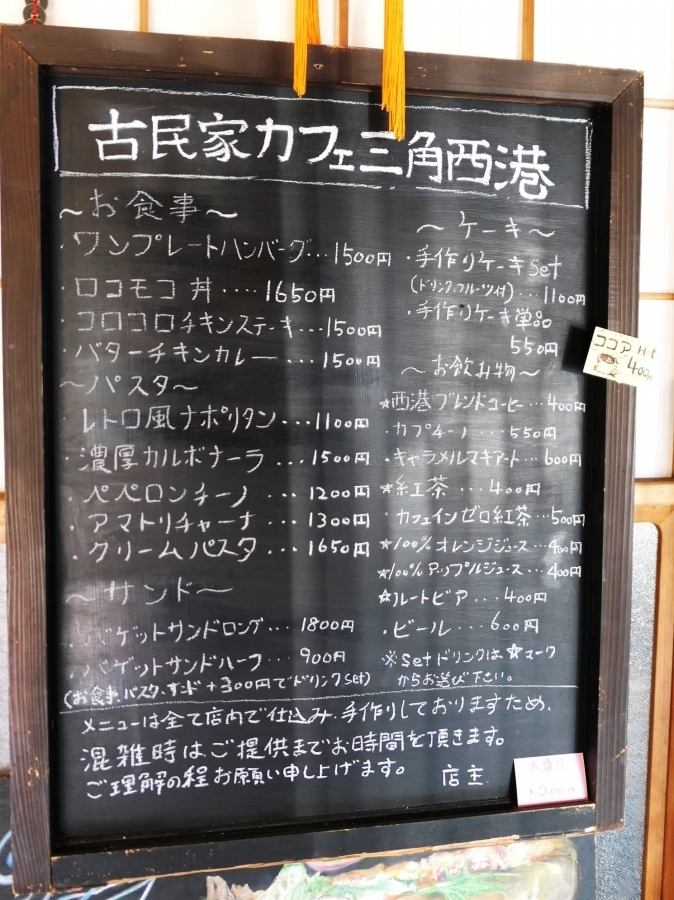 古民家カフェ三角西港
〜お食事〜
・ワンプレートハンバーグ…1500円
・ロコモコ丼‥‥1650円
・コロコロチキンステーキ…1500円
・バターチキンカレー…1500円
〜パスタ〜
・レトロ風ナポリタン…1100円
・濃厚カルボナーラ…1500円
・ペペロンチーノ…1200円
・アマトリチャーナ…1300円
・クリームパスタ…1650円
〜サンド〜
・バゲットサンドロング…1800円
・バゲットサンドハーフ…900円
(お食事・パスタ・サンド+300円でドリンクset)
〜ケーキ〜
・手作りケーキset
(ドリンク、フルーツ付)…1100円
・手作りケーキ単品
550円
〜お飲み物〜
☆西港ブレンドコーヒー…400円
・カプチーノ‥‥550円
・キャラメルマキアート…600円
☆紅茶…400円
・カフェインゼロ紅茶…500円
☆100%オレンジジュース…400円
☆100%アップルジュース…400円
☆ルートビア…400円
・ビール…600円
※setドリンクは☆マーク
からお選び下さい。
ココア Hot
400円
メニューは全て店内で仕込み、手作りしておりますため、
混雑時はご提供までお時間を頂きます。
ご理解の程お願い申し上げます。 店主.
大盛り
+200円